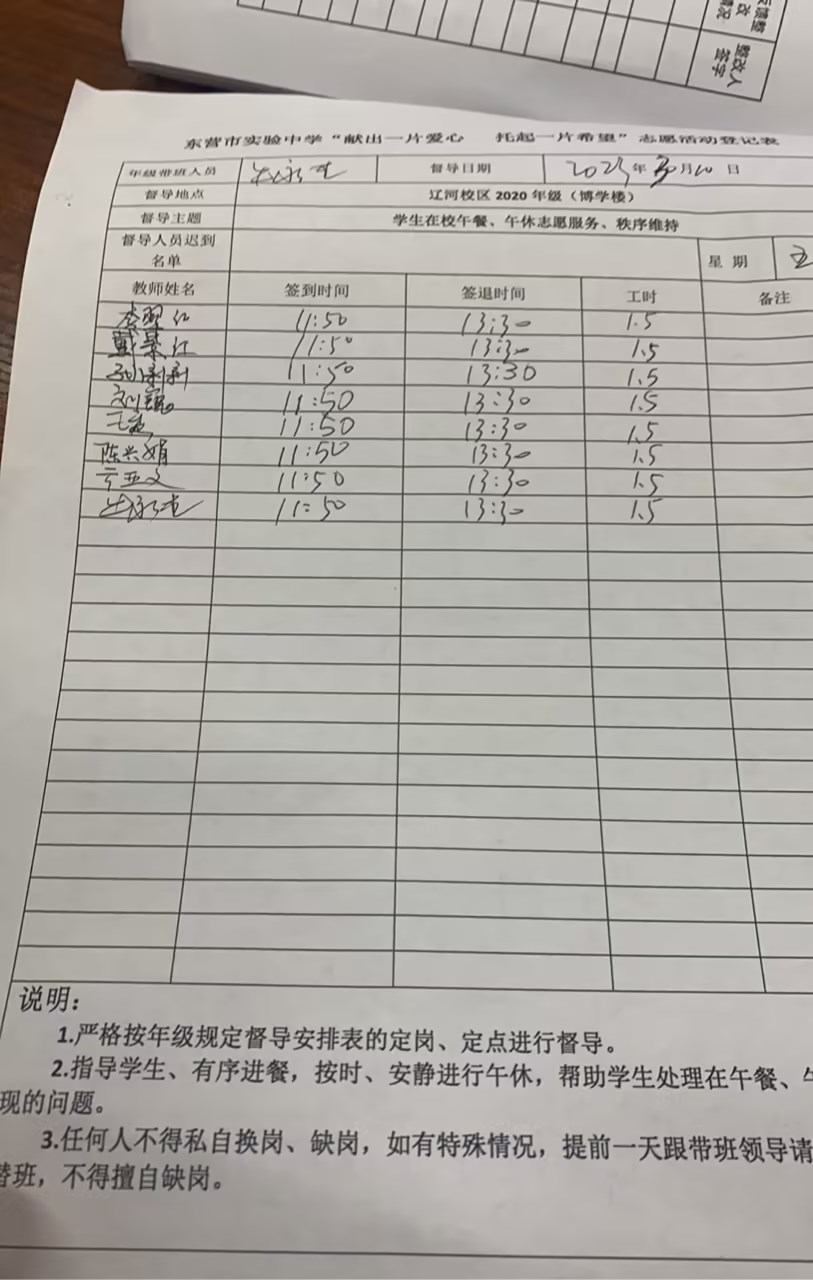 整改人
签字
东营市实验中学“献出一片爱心 托起一片希望”志愿活动登记表
年级带班人员 督导日期 2023年3月10日
督导地点 辽河校区 2020 年级（博学楼）
督导主题 学生在校午餐、午休志愿服务、秩序维持
督导人员迟到
名单 星 期 五
教师姓名 签到时间 签退时间 工时 备注
11:50 13:30 1.5
戴景红 11:50 13:30 1.5
11:50 13:30 1.5
11:50 13:30 1.5
11:50 13:30 1.5
陈兴娟 11:50 13:30 1.5
11:50 13:30 1.5
11:50 13:30 1.5
说明：
1.严格按年级规定督导安排表的定岗、定点进行督导。
2.指导学生、有序进餐，按时、安静进行午休，帮助学生处理在午餐、午
现的问题。
3.任何人不得私自换岗、缺岗，如有特殊情况，提前一天跟带班领导请
替班，不得擅自缺岗。